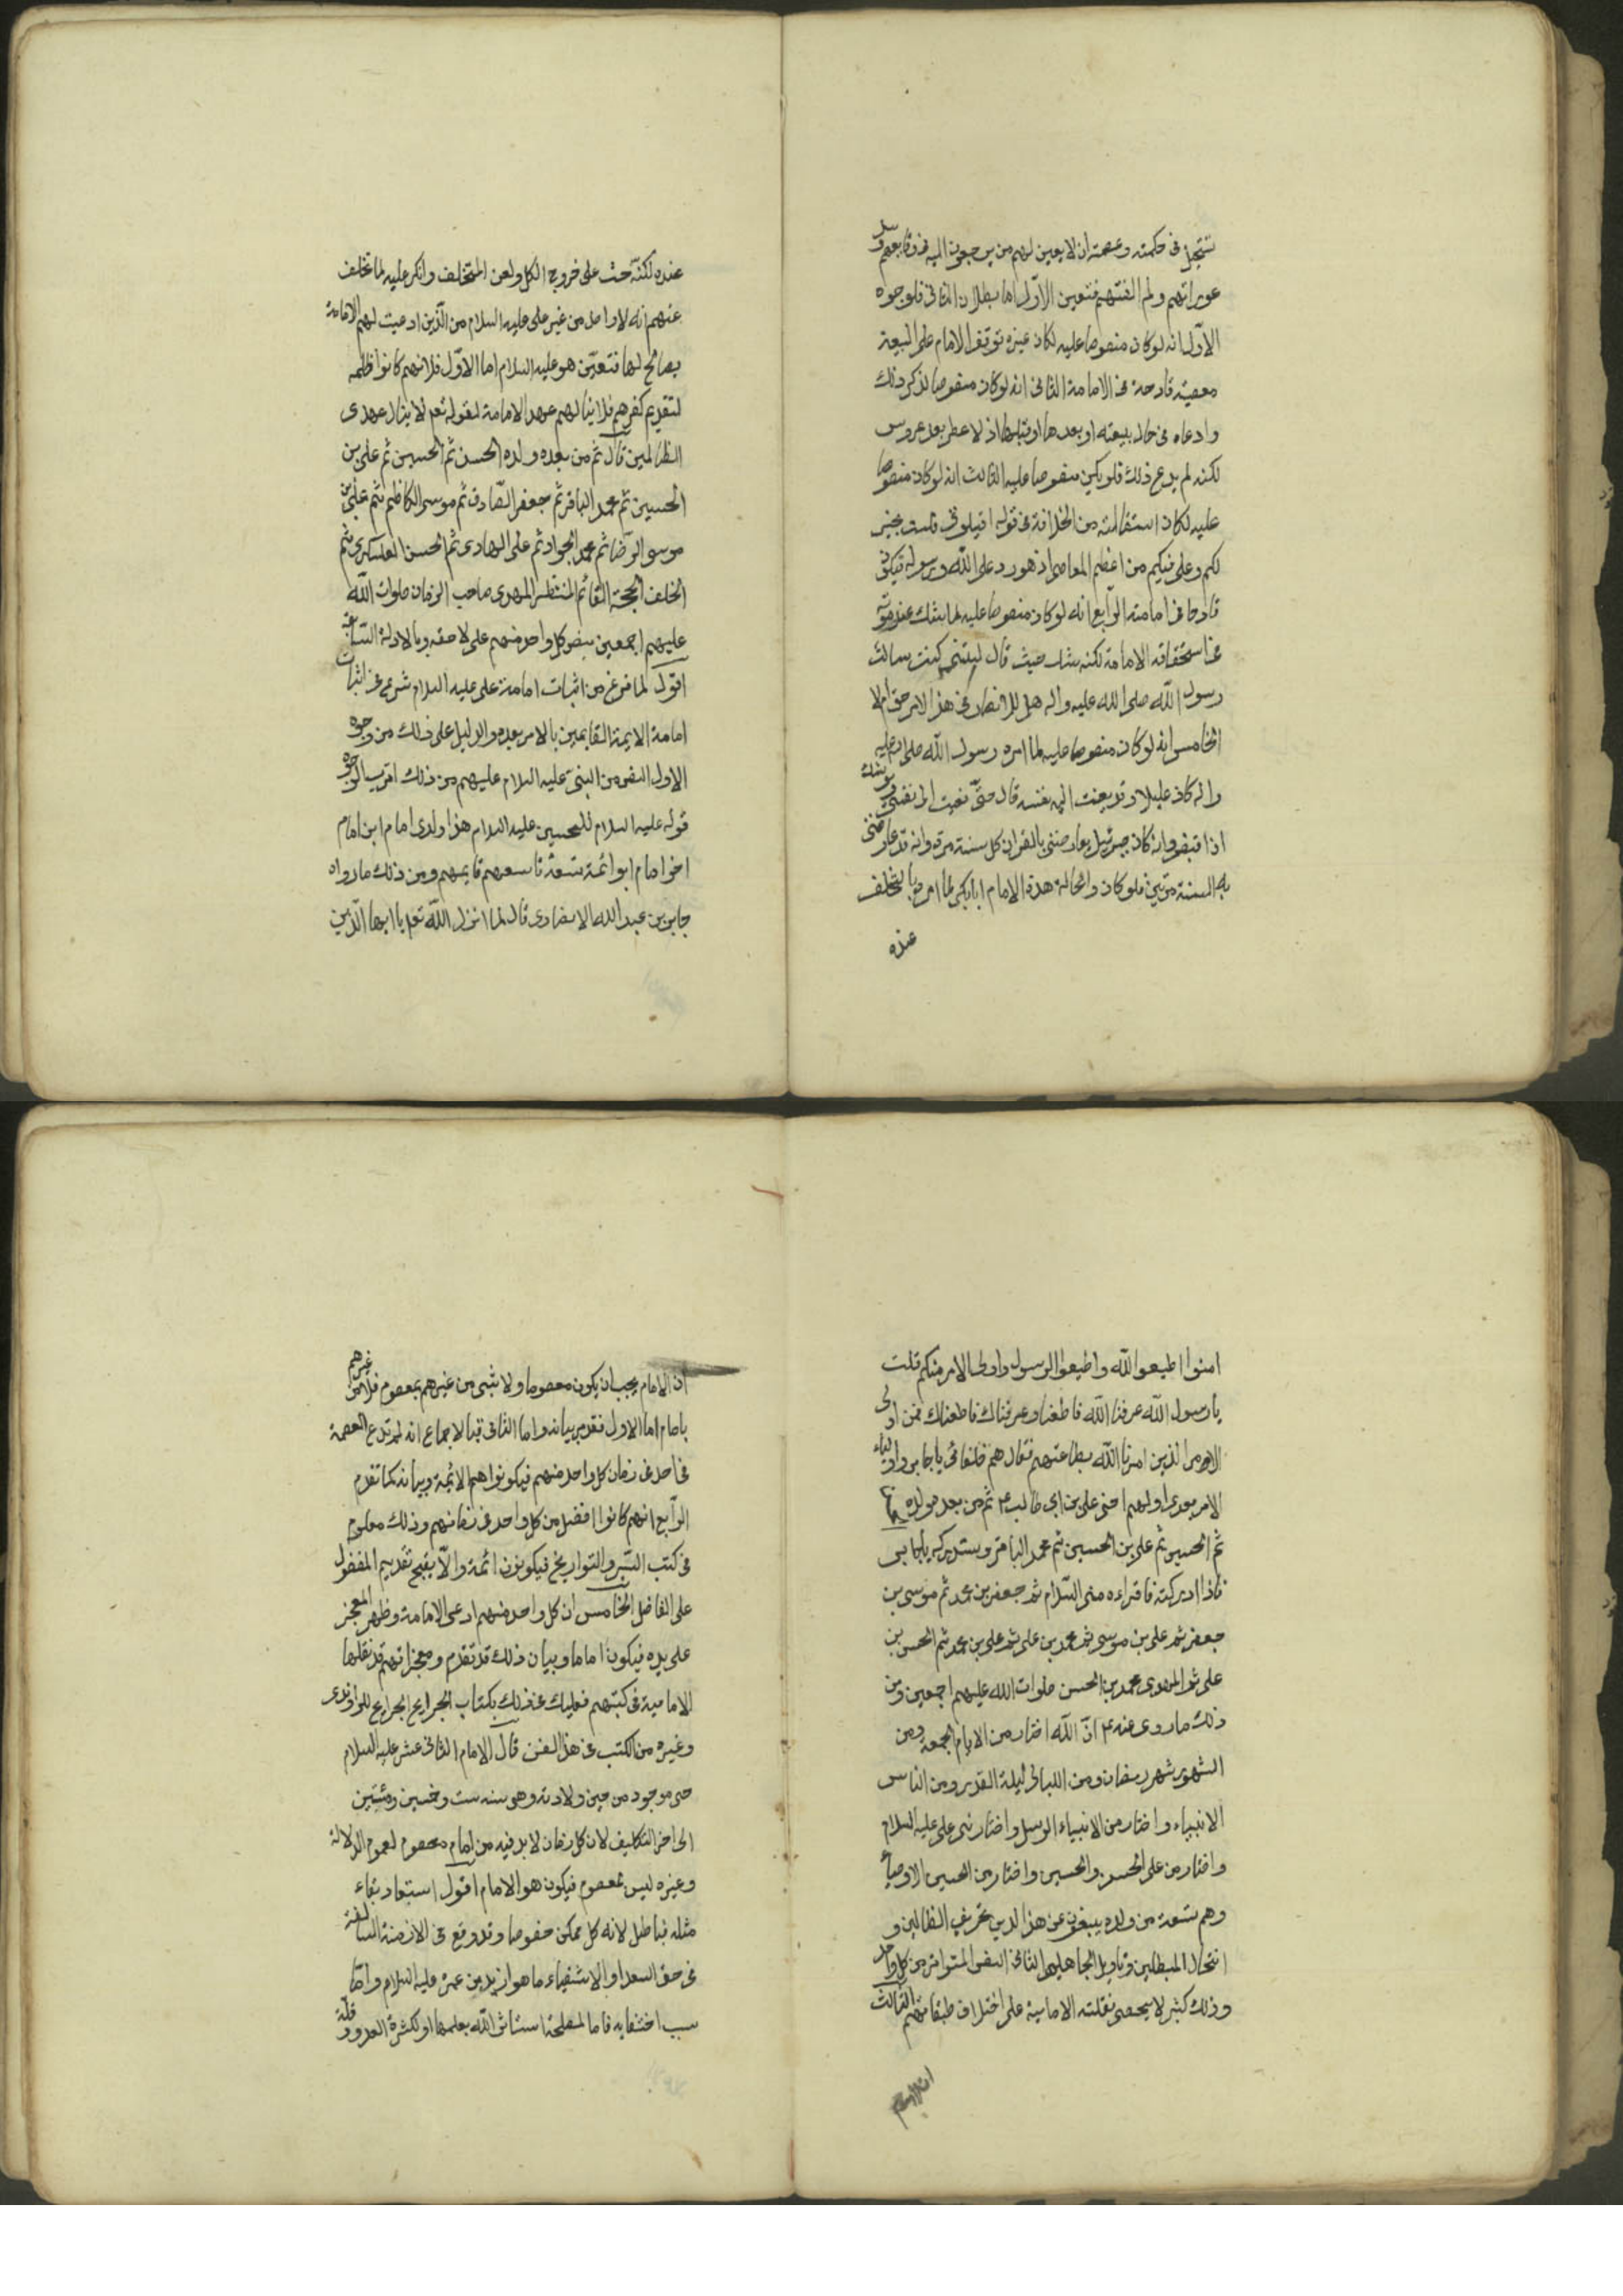 تتجل فى حكمته وعصمته ان لا يعين لهم من يرجعون اليه فى وقايعهم وسد
عوراتهم ولم الفتهم فتعين الاول اما بطلان الثانى فلوجوه
الاول انه لو كان منصوصا عليه لكان غيره توقف الامام على البيعة
معصية قادحة فى الامامة الثانى انه لو كان منصوصا لذكر ذلك
وادعاه فى حال بيعته او بعدها او قبلها اذ لا عطر بعد عروس
لكنه لم يدع ذلك فلم يكن منصوصا عليه الثالث انه لو كان منصوصا
عليه لكان استقالته من الخلافة فى قوله اقيلونى فلست بخير
لكم وعلى فيكم من اعظم المعاصى اذ هو رد على الله ورسوله فيكون
قادحا فى امامته الرابع انه لو كان منصوصا عليه لما شك عند موته
فى استحقاقه الامامة لكنه شك حيث قال ليتنى كنت سالت
رسول الله صلى الله عليه واله هل للانصار فى هذا الامر حق ام لا
الخامس انه لو كان منصوصا عليه لما امره رسول الله صلى الله عليه
واله كان عليلا وقد نعيت اليه نفسه قال حتى نعيت الى نفسى ويوشك
اذا قبض وانه كان جبرئيل يعارضنى بالقران كل سنة مرة وانه قد عارضنى
به السنة مرتين فلو كان والحالة هذه الامام ابا بكر لما امر بالتخلف
عنده
عنده لكنه حث على خروج الكل ولعن المتخلف وانكر عليه لما تخلف
عنهم انه لا واحد من غير على عليه السلام من الذين ادعيت لهم الامامة
يصالح لها فتعين هو عليه السلام اما الاول فلانهم كانوا ظلمه
لتقديم كفرهم فلا ينالهم عهد الامامة لقوله تعم لا ينال عهدى
الظالمين قال ثم من بعده ولده الحسن ثم الحسين ثم على بن
الحسين ثم محمد الباقر ثم جعفر الصادق ثم موسى الكاظم ثم على بن
موسى الرضا ثم محمد الجواد ثم على الهادى ثم الحسن العسكرى ثم
الخلف الحجة القائم المنتظر المهدى صاحب الزمان صلوات الله
عليهم اجمعين بنص كل واحد منهم على لاحقه وبالادلة السابقة
اقول لما فرغ من اثبات امامة على عليه السلام شرع فى اثبات
امامة الايمة القايمين بالامر بعده والدليل على ذلك من وجوه
الاول النص من النبى عليه السلام عليهم من ذلك اقرب الوجوه
قوله عليه السلام للحسين عليه السلام هذا ولدى امام ابن امام
اخو امام ابو ائمة تسعة تاسعهم قايمهم ومن ذلك ما رواه
جابر بن عبد الله الانصارى قال لما انزل الله تعم يا ايها الذين
امنوا اطيعوا الله واطيعوا الرسول واولى الامر منكم قلت
يا رسول الله عرفنا الله فاطعناه وعرفناك فاطعناك فمن اولى
الامر الذين امرنا الله بطاعتهم فقال هم خلفائى يا جابر واولياء
الامر بعدى اولهم اخى على بن ابى طالب ع ثم من بعده ولده
ثم الحسين ثم على بن الحسين ثم محمد الباقر وستدركه يا جابر
فاذا ادركته فاقراءه منى السلام ثم جعفر بن محمد ثم موسى بن
جعفر ثم على بن موسى ثم محمد بن على ثم على بن محمد ثم الحسن بن
على ثم المهدى محمد بن الحسن صلوات الله عليهم اجمعين ومن
ذلك ما روى عنه ع ان الله اختار من الايام الجمعه ومن
الشهور شهر رمضان ومن الليالى ليلة القدر ومن الناس
الانبياء واختار من الانبياء الرسل واختار منى على عليه السلام
واختار من على الحسن والحسين واختار من الحسين الاوصياء
وهم تسعة من ولده ينفون عن هذا الدين تحريف الظالين و
انتحال المبطلين وتاويل الجاهلين الثانى النص المتواتر من كل واحد
وذلك كثير لا يحصى نقلته الامامية على اختلاف طبقاتهم الثالث
ان الامام
ان الامام يجب ان يكون معصوما ولا شى من غيرهم بمعصوم فلا من غيرهم
بامام اما الاول فقد مر بيانه واما الثانى فبالاجماع انه لم تدع العصمة
فى احد فى زمان كل واحد منهم فيكونوا هم الائمة وبيانه كما تقدم
الرابع انهم كانوا افضل من كل واحد فى زمانهم وذلك معلوم
فى كتب السير والتواريخ فيكونون ائمة والا يقبح تقديم المفضول
على الفاضل الخامس ان كل واحد منهم ادعى الامامة وظهر المعجز
على يده فيكون اماما وبيان ذلك قد تقدم ومعجزاتهم قد نقلها
الامامية فى كتبهم فعليك فى ذلك بكتاب الخرايج الجرايح للراوندى
وغيره من الكتب فى هذا الفن قال الامام الثانى عشر عليه السلام
حى موجود من حين ولادته وهى سنه ست وخمسين ومئتين
الى اخر التكليف لان كل زمان لا بد فيه من امام معصوم لعموم الدلالة
وغيره ليس بمعصوم فيكون هو الامام اقول استبعاد بقاء
مثله فباطل لانه كل ممكن خصوصا وقد وقع فى الازمنة السالفة
فى حق السعداء والاشقياء ما هو ازيد من عمره عليه السلام واما
سبب اختفايه فاما لمصلحة استاثر الله بعلمها او لكثرة العدو وقلة